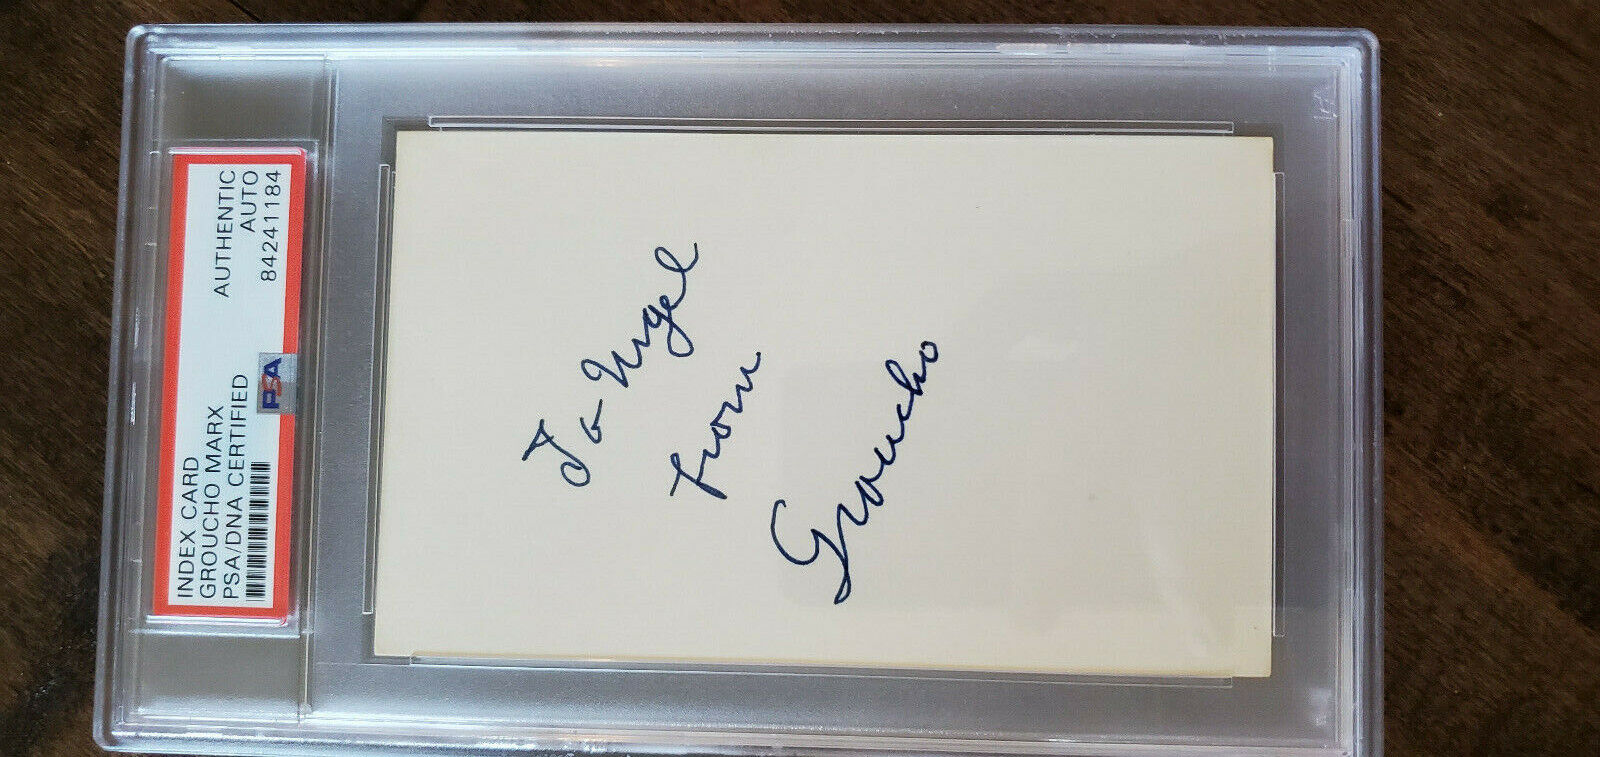 INDEX CARD
GROUCHO MARX
PSA/DNA CERTIFIED
AUTHENTIC
AUTO
84241184
PSA
To Nigel
from
Groucho